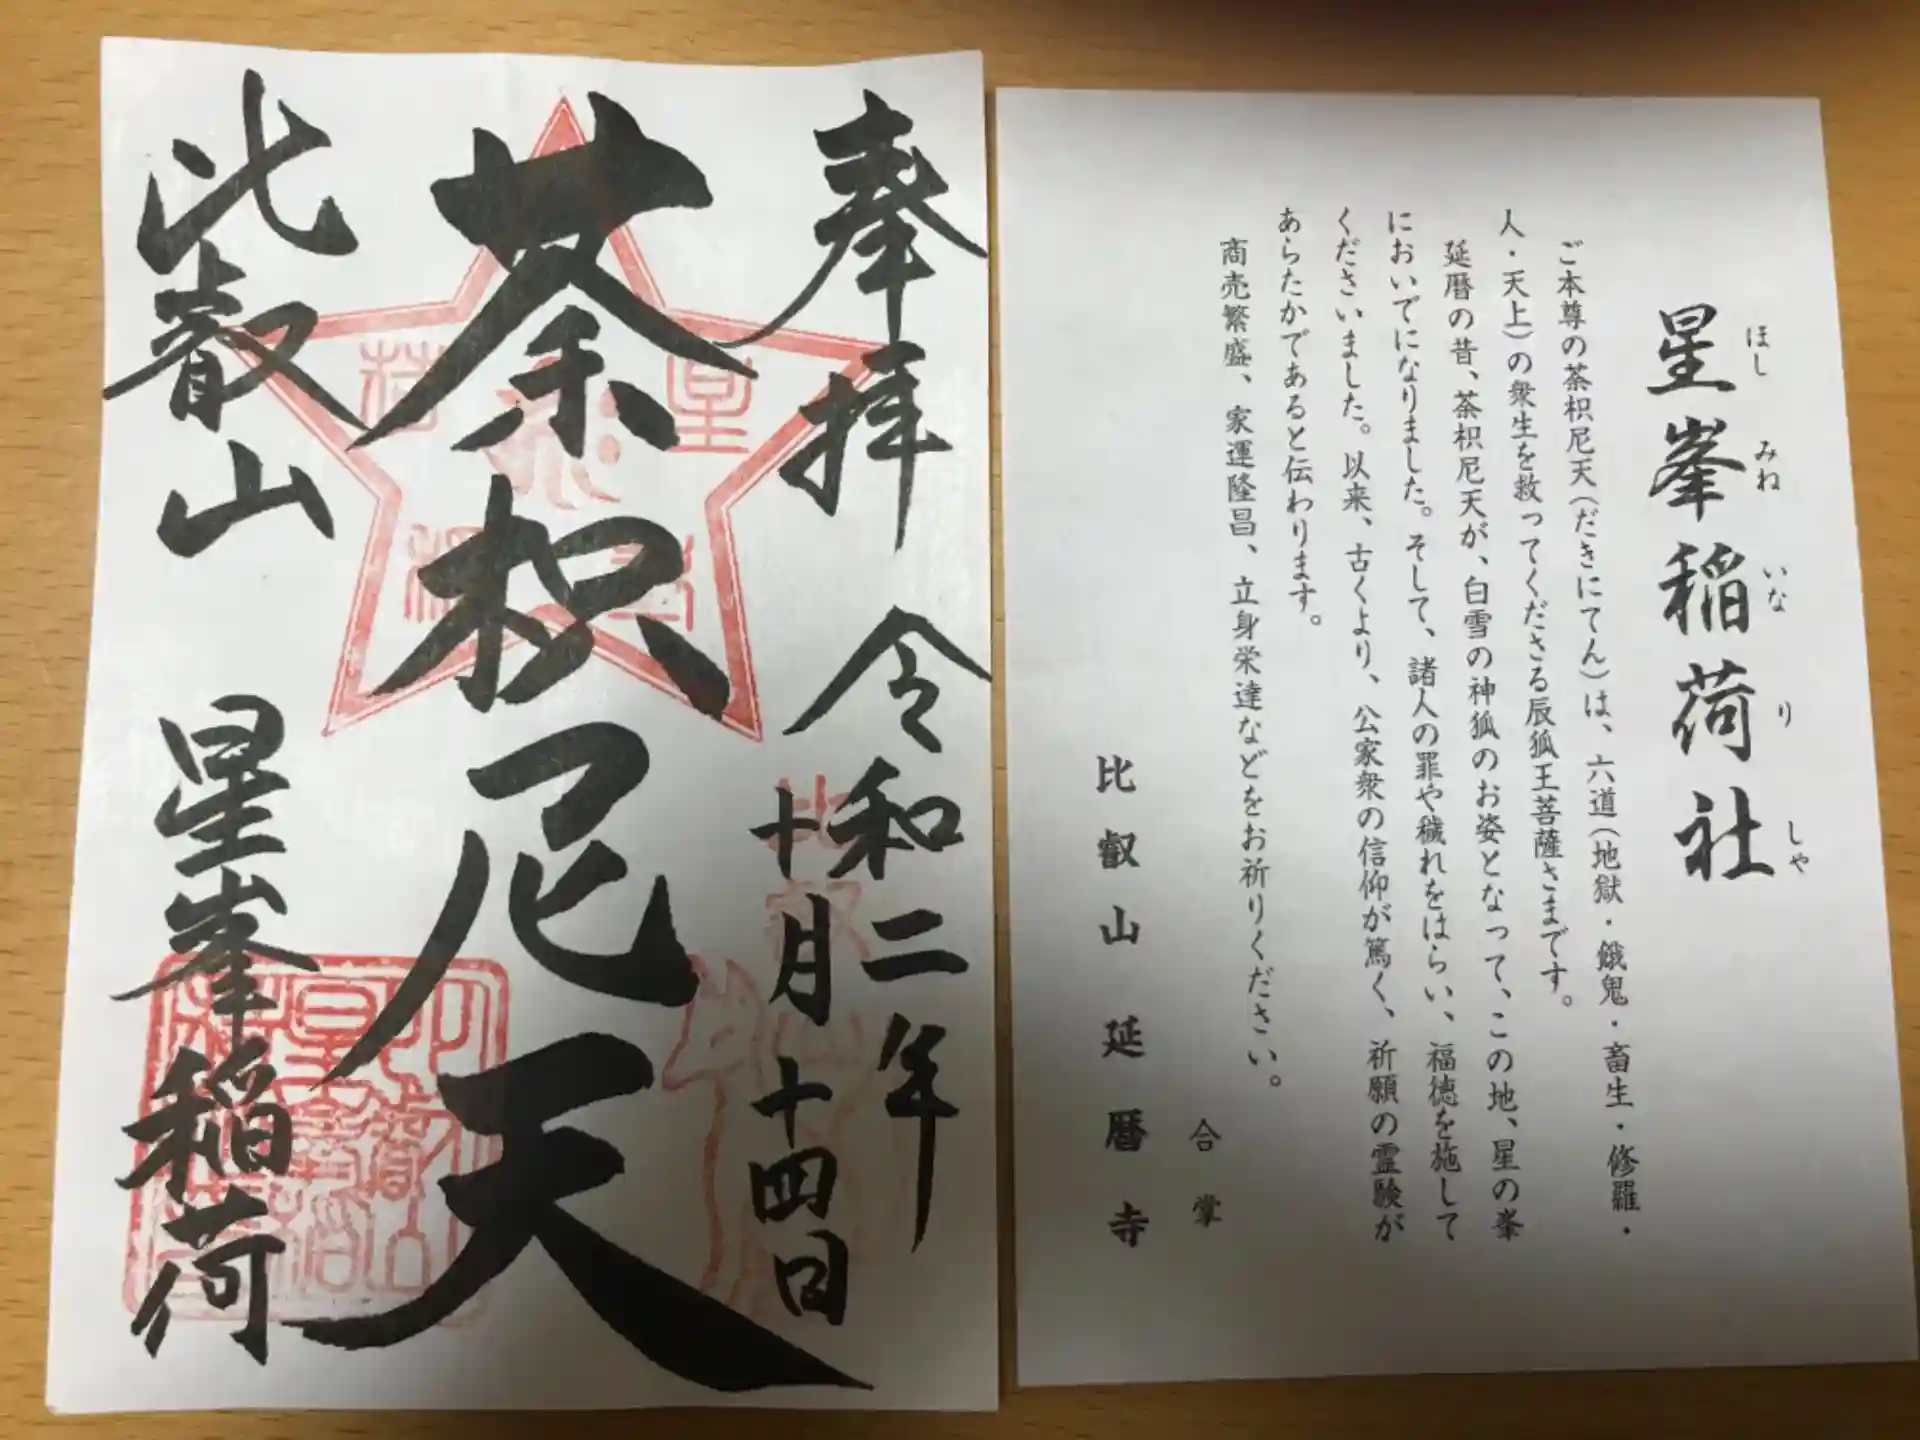 奉拝 令和二年
十月十四日
荼枳尼天
比叡山 星峯稲荷
星峯稲荷社
ほし みね いな り しゃ
ご本尊の荼枳尼天（だきにてん）は、六道（地獄・餓鬼・畜生・修羅・
人・天上）の衆生を救ってくださる辰狐王菩薩さまです。
延暦の昔、荼枳尼天が、白雪の神狐のお姿となって、この地、星の峯
においでになりました。そして、諸人の罪や穢れをはらい、福徳を施して
くださいました。以来、古くより、公家衆の信仰が篤く、祈願の霊験が
あらたかであると伝わります。
商売繁盛、家運隆昌、立身栄達などをお祈りください。
合掌
比叡山延暦寺